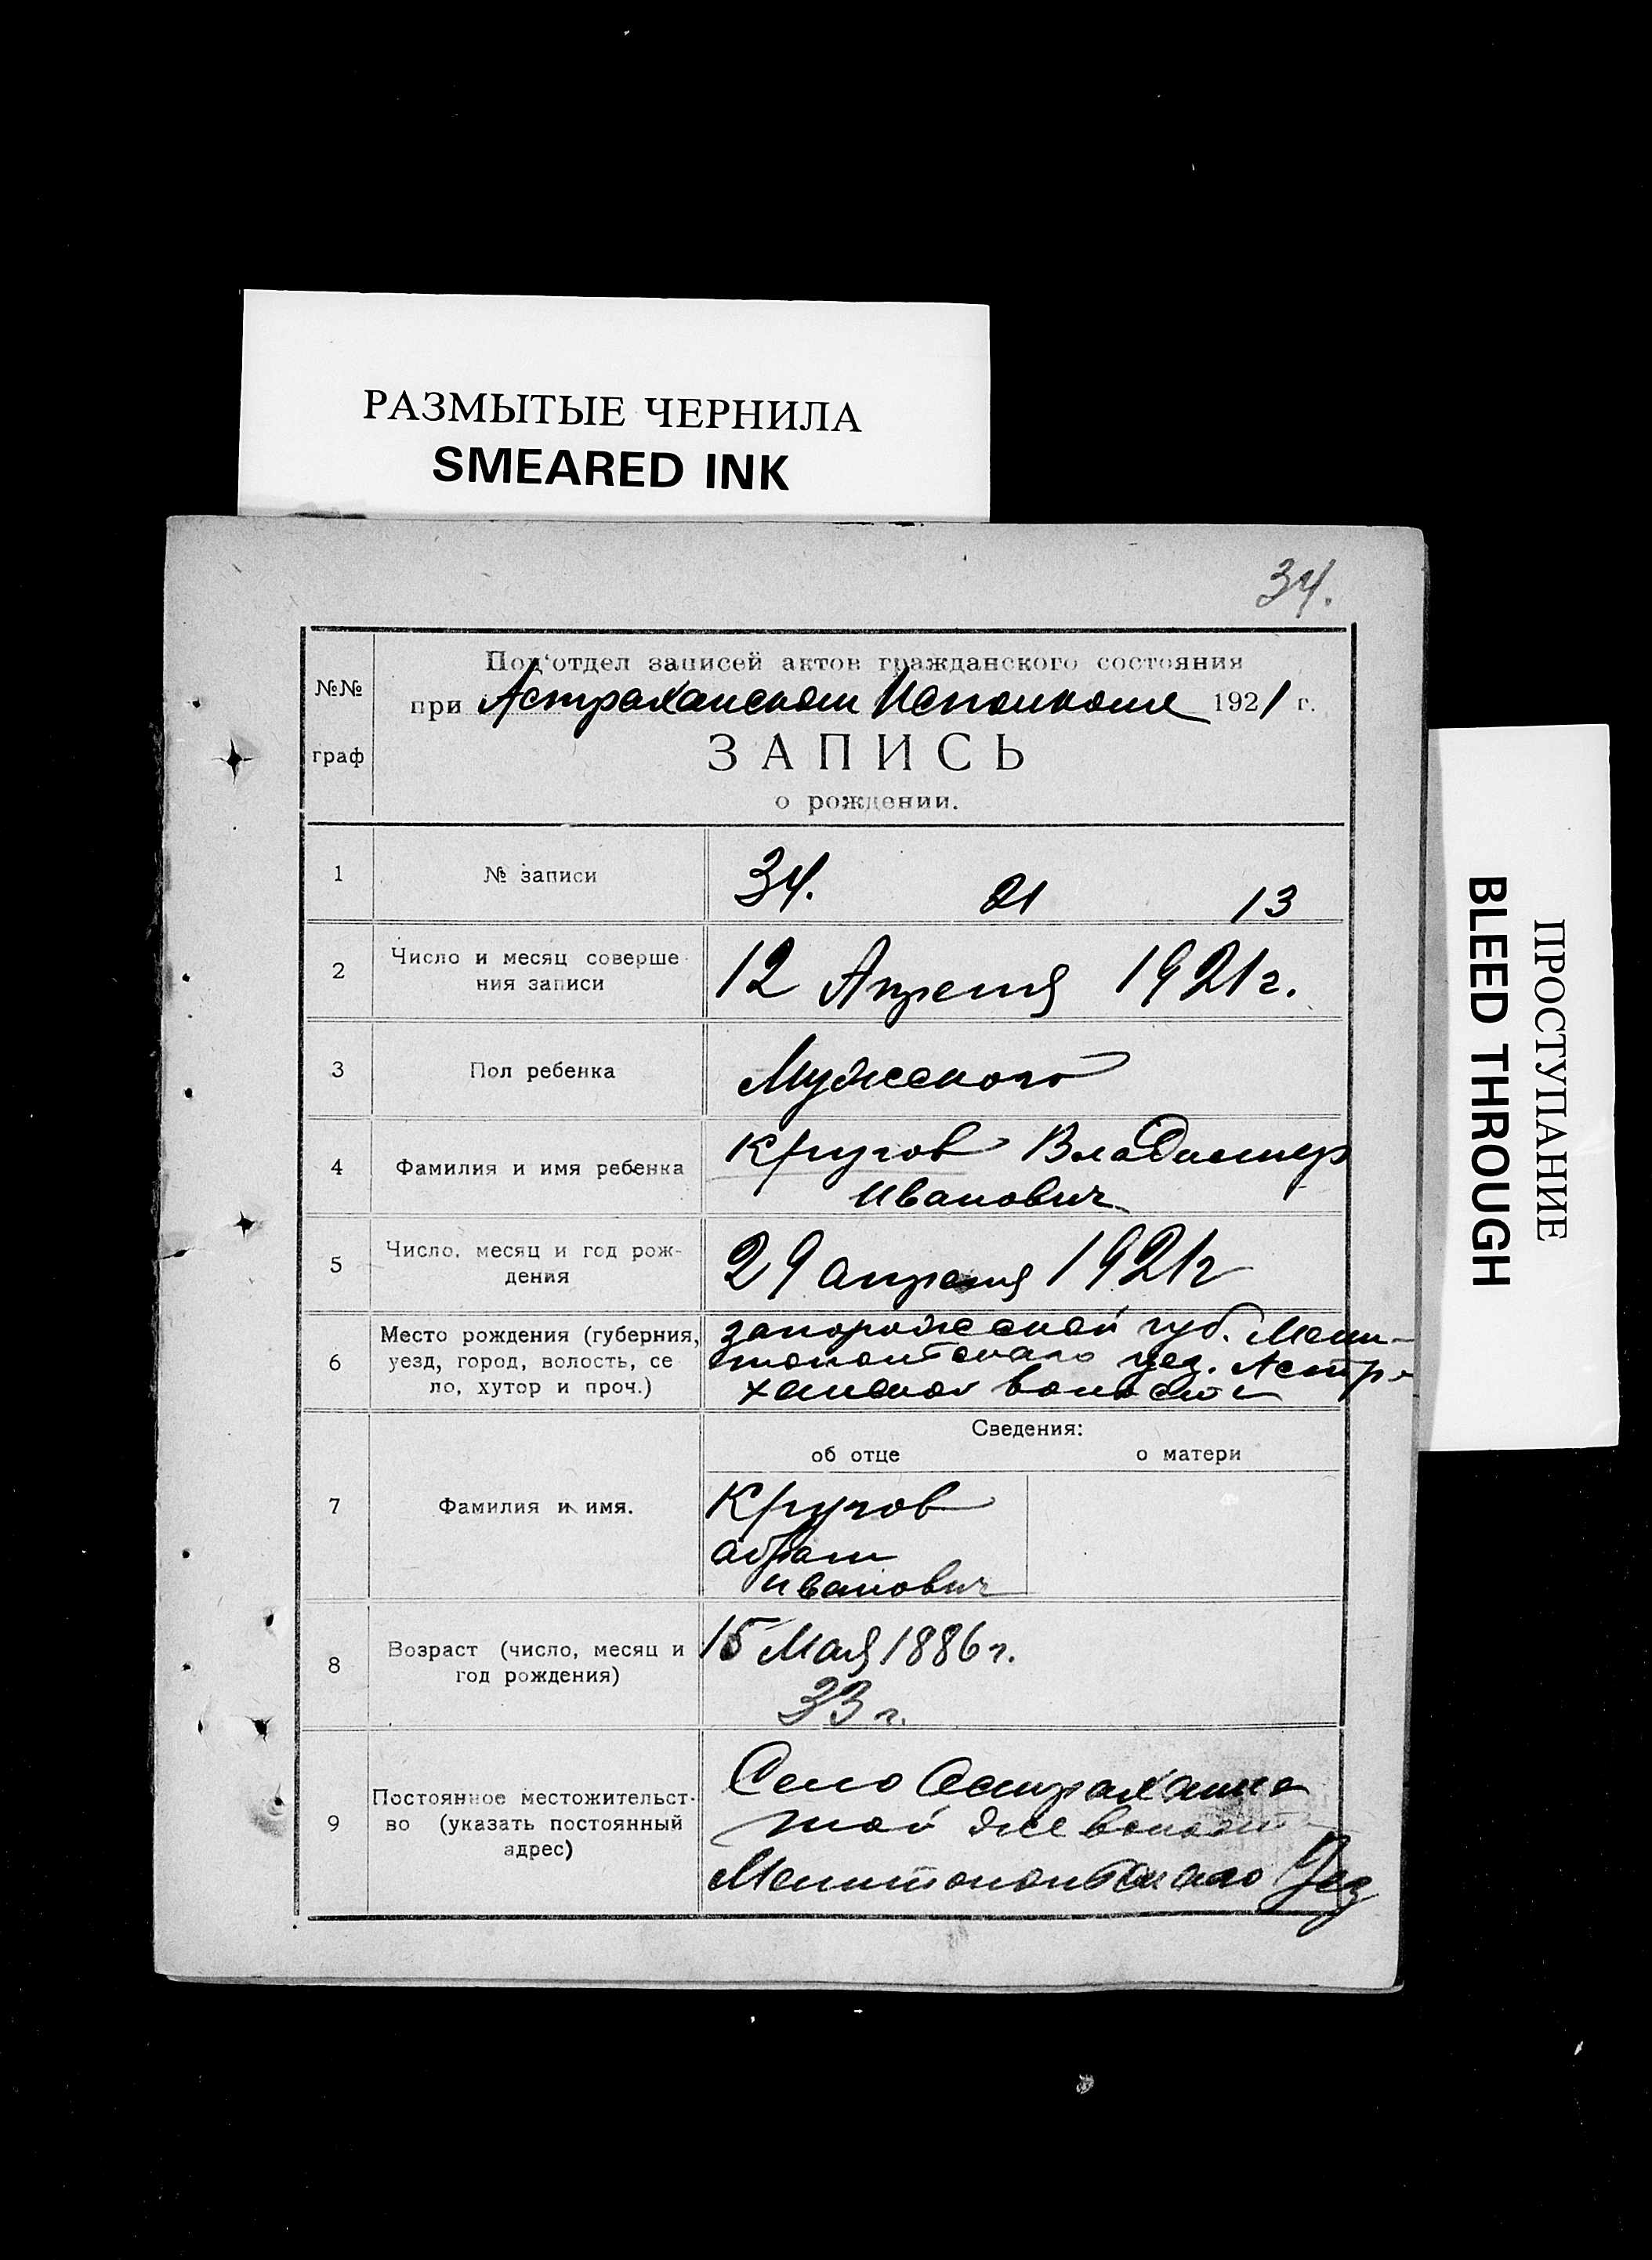 РАЗМЫТЫЕ ЧЕРНИЛА
SMEARED INK
34.
№№
граф
Под‘отдел записей актов гражданского состояния
при Астраханском Исполкоме 1921 г.
ЗАПИСЬ
о рождении.
1 № записи 34. 21 13
2 Число и месяц соверше-
ния записи
12 Апреля 1921 г.
3 Пол ребенка Мужеского
4 Фамилия и имя ребенка
Кругов Владимир
Иванович
5 Число, месяц и год рож-
дения
29 апреля 1921 г
6 Место рождения (губерния,
уезд, город, волость, се
ло, хутор и проч.)
запорожской губ. Мели-
топольскаго уез. Астр
ханской волости
Сведения:
об отце о матери
7 Фамилия и имя.
Кругов
Абрам
Иванович
8 Возраст (число, месяц и
год рождения)
15 Мая 1886 г.
33 г.
9 Постоянное местожительст-
во (указать постоянный
адрес)
Село Астраханка
той же волости
Мелитопольскаго Уез
ПРОСТУПАНИЕ
BLEED THROUGH